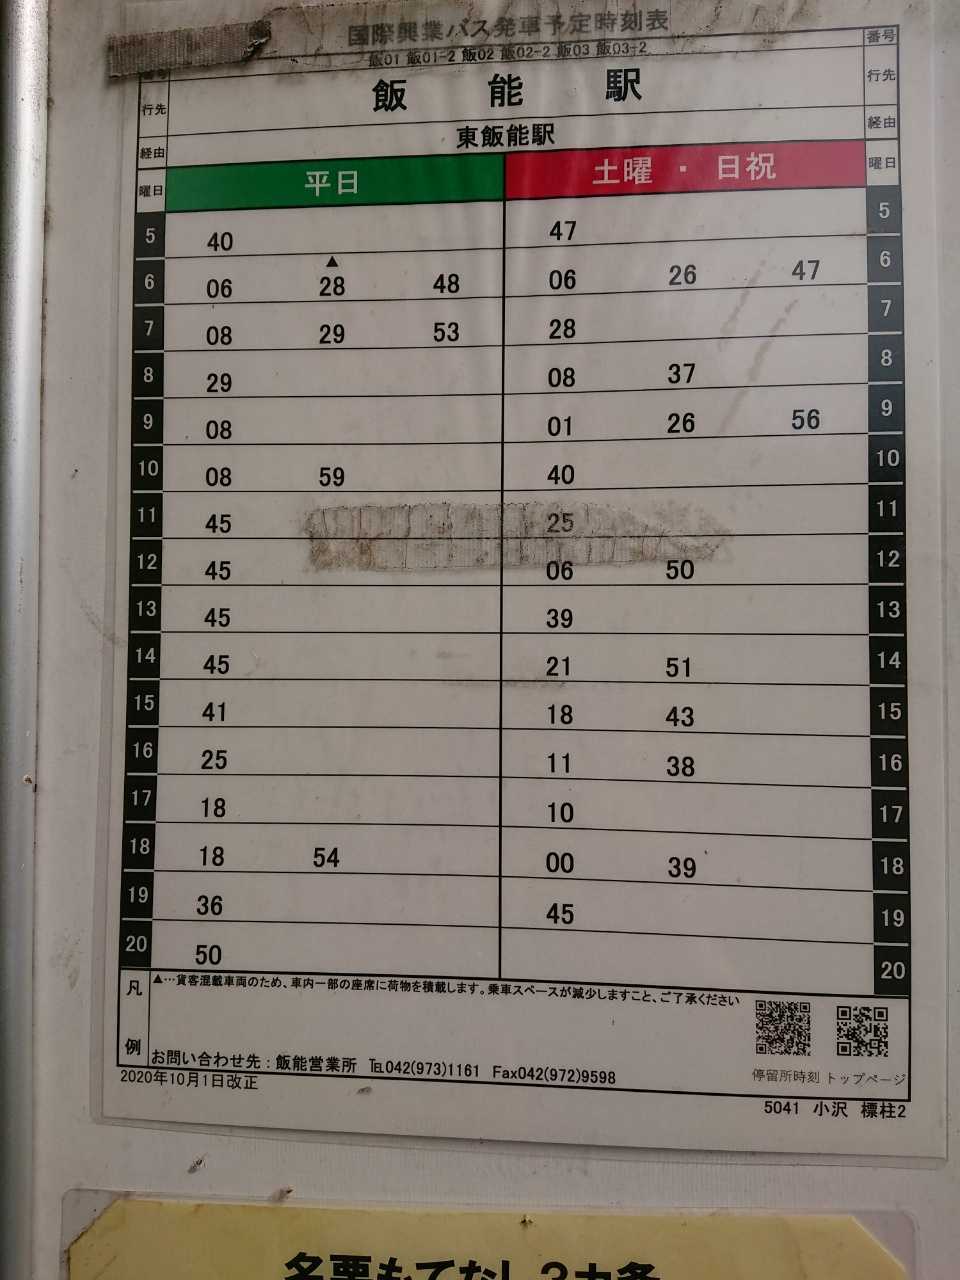 国際興業バス発車予定時刻表
飯01 飯01-2 飯02 飯02-2 飯03 飯03-2
番号 番号
行先 飯能駅 行先
経由 東飯能駅 経由
曜日 平日 土曜・日祝 曜日
5 40 47 5
6 06 ▲28 48 06 26 47 6
7 08 29 53 28 7
8 29 08 37 8
9 08 01 26 56 9
10 08 59 40 10
11 45 25 11
12 45 06 50 12
13 45 39 13
14 45 21 51 14
15 41 18 43 15
16 25 11 38 16
17 18 10 17
18 18 54 00 39 18
19 36 45 19
20 50 20
凡例
▲…貨客混載車両のため、車内一部の座席に荷物を積載します。乗車スペースが減少しますこと、ご了承ください
お問い合わせ先：飯能営業所 ℡042(973)1161 Fax042(972)9598
停留所時刻 トップページ
2020年10月1日改正
5041 小沢 標柱2
名栗もてなし3カ条